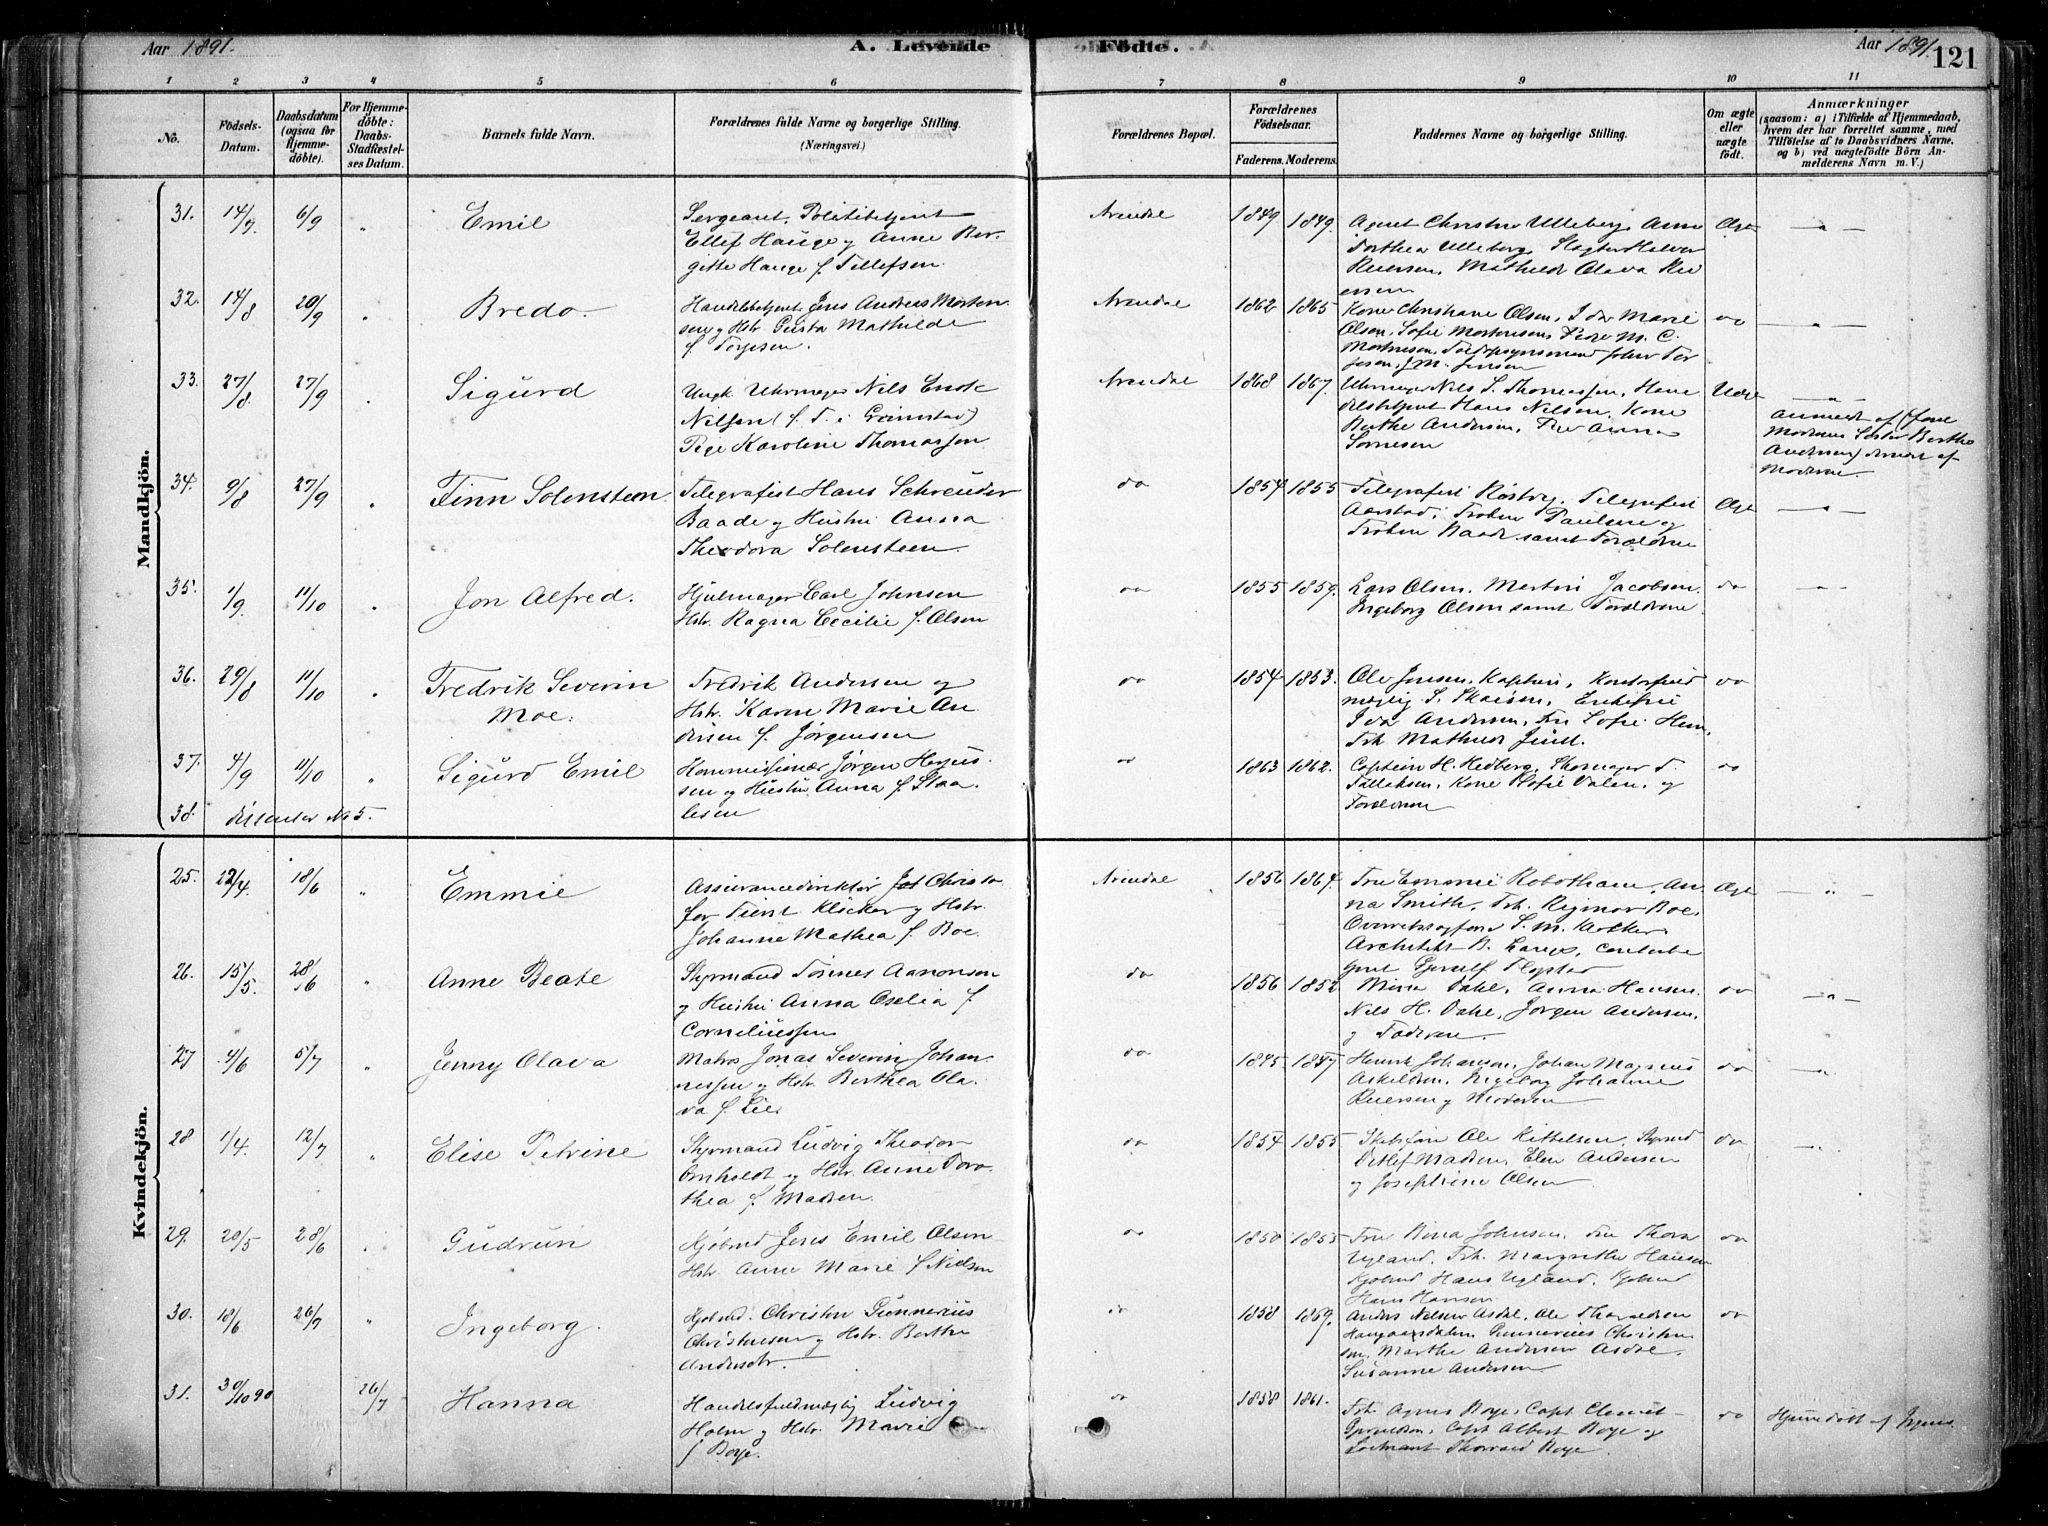 Aar 1891.
A. Levende
Födte.
Aar 1891.
121
1 2 3 4 5 6 7 8 9 10 11
No.
Födsels-Datum.
Daabsdatum (ogsaa for Hjemme-döbte).
For Hjemme-döbte: Daabs-Stadfæstel-ses Datum.
Barnets fulde Navn.
Forældrenes fulde Navne og borgerlige Stilling.
(Næringsvei.)
Forældrenes Bopæl.
Forældrenes Födselsaar.
Faderens. Moderens.
Faddernes Navne og borgerlige Stilling.
Om ægte eller uægte födt.
Anmærkninger
(saasom: a) i Tilfælde af Hjemmedaab,
hvem der har forrettet samme, med
Tilföielse af to Daabsvidners Navne,
og b) ved uægtefödte Börn An-
melderens Navn m. V.)
Mandkjön.
31. 14/7 6/9 " Emil
Sergeant, Politibetjent
Ellef Hauge og Anne Ber-
gitte Hauge f. Tellefsen
Arendal 1849 1849.
Agent Christen Ulleberg, Anne
Dorthea Ulleberg, Slagter Halvor
Reiersen, Mathilde Olava Rei
ersen
Ægt — " —
32. 14/8 20/9 " Bredo.
Handelsbetjent Jens Andreas Morten
sen og Hstr. Mathilde
f. Torjesen.
Arendal 1862 1865
Kone Christiane Olsen, Ida Marie
Olsen, Sofie Mortensen, M. C.
Mortensen, John Tor
jesen, J. M. Jensen
do — " —
33. 27/8 27/9 " Sigurd
Ungk. Uhrmager Nils Enok
Nilsen (f. T. i Grimstad)
Pige Karoline Thomassen
Arendal 1868 1867
Uhrmager Nils S. Thomassen, Han
delsbetjent Hans Nilsen, Kone
Berthe Andersen, Anna
Sørensen
Uægt — " —
Anmeldt af
Moderens Søster Berthe
Andersen af
Moderen.
34. 9/8 27/9 " Finn Solensteen.
Telegrafist Hans Schreuder
Baade og Hustru Anna
Theodora Solensteen.
do 1854 1855
Telegrafist Telegrafist
Aarstad, Frøken Paulsen og
Frøken Baade samt Forældrene
Ægt — " —
35. 1/9 11/10 " Jon Alfred.
Hjulmager Carl Johnsen
Hstr. Ragna Cecilie f. Olsen
do 1855 1859.
Lars Olsen, Martin Jacobsen,
Ingeborg Olsen samt Forældrene
do — " —
36. 29/8 11/10 " Fredrik Severin
Moe.
Fredrik Andersen og
Hstr. Karen Marie An
dersen f. Jörgensen
do 1854 1853.
Ole Jensen, Kaptein, Kontorfuld
mægtig S. Enkefru
Ida Andersen, Fru Sofie
Frk. Mathilde
do
37. 4/9 11/10 " Sigurd Emil
Kommissionær Jørgen
sen og Hustru Anna f. Staa-
lesen
do 1863 1862.
Captein H. Hedberg, Skomager T.
Tellefsen, Kone Sofie Dalen, og
Forældrene
do
38. Dissenter No 5.
Kvindekjön.
25. 22/4 18/6 " Emmie
Assurancedirektør Christo
fer Fürst Kløcker og Hstr.
Johanne Mathea f. Boe.
Arendal 1856 1864.
Fru Emmie Robotham, An
na Smith, Frk. Rigmor Boe,
Overretssagfører S. M. Kløcker,
Architekt B. Lange,
Ægt — " —
26. 15/5. 28/6 " Anne Beate
Styrmand Tönnes Aanonsen
og Hustru Anna Oselia f.
Corneliussen
do 1856 1852.
Mina Dahl, Anna Hansen,
Nils H. Dahl, Jørgen Andersen,
og Faderen.
do — " —
27 4/6 5/7 " Jenny Olava
Matros Jonas Severin Johan-
nessen og Hstr. Berthea Ola-
va f. Lie
do 1845 1847
Henrik Johansen, Johan Magnus
Askeldsen, Ingeborg Johanne
Reiersen og Moderen
do — "
28 1/4. 12/7 " Elise Petrine
Styrmand Ludvig Theodor
Omholdt og Hstr. Anne Doro-
thea f. Madsen.
do 1854 1855
Skibsfører Ole Kittelsen, Styrmd
Detlef Madsen, Elen Andersen
og Josephine Olsen
do — "
29. 20/5 28/6 " Gudrun
Kjöbmd Jens Emil Olsen
Hstr. Anne Marie f. Nielsen
do 1850 1853
Fru Bina Johnsen, Fru Thora
Ugland, Frk. Margrethe Hansen
Kjøbmd Hans Ugland, Kjøbmd
Hans Hansen
do
30. 18/6 26/7 " Ingeborg.
Kjøbmd. Christen Gunnerius
Christensen og Hstr. Berthe
Andersdtr.
do 1858 1869.
Anders Nelsen Asdal, Ole Tharaldsen
Haugaasdalen, Gunnerius Christen
sen, Marthe Andersen Asdal,
Susanne Andersen
do
31. 30/10 90 26/7 Hanna
Handelsfuldmægtig Ludvig
Holm og Hstr. Marie
f. Boye.
do 1858 1861.
Frk. Agnes Boye, Capt.
Capt Albert Boye og
Thorvald Boye.
do Hjemmedøbt af